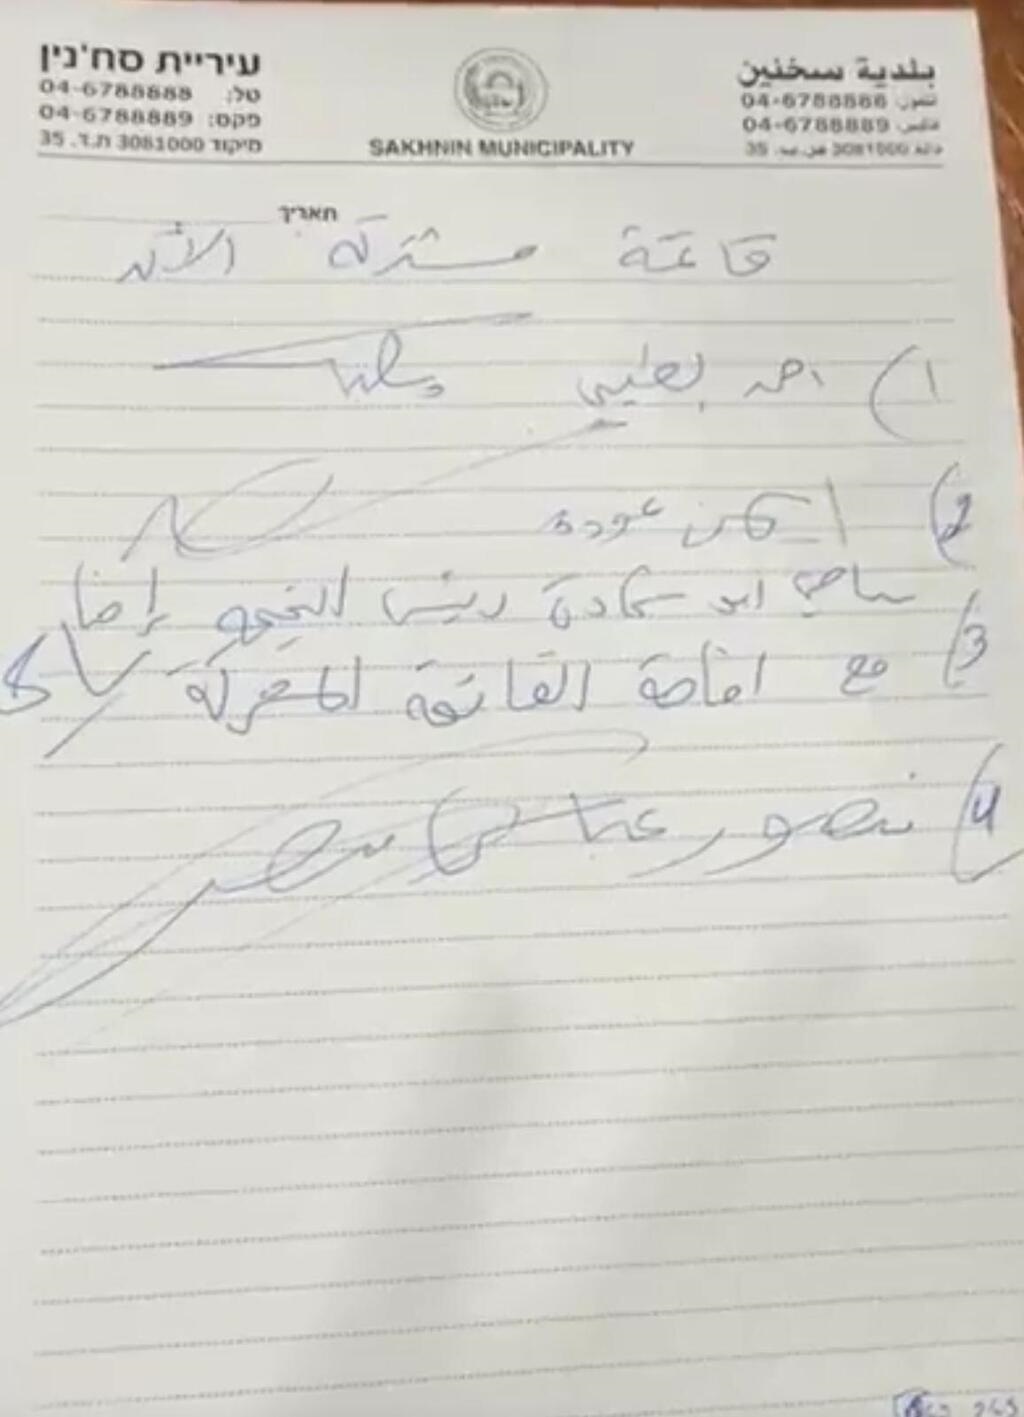 עיריית סח'נין
טל: 04-6788888
פקס: 04-6788889
מיקוד 3081000 ת.ד. 35
SAKHNIN MUNICIPALITY
بلدية سخنين
تلفون: 04-6788888
فاكس: 04-6788889
3081000 ص.ب. 35
תאריך
قائمة مشتركة الآن
(1 احمد الطيبي
(2 ايمن عودة
سامي ابو شحادة رئيس التجمع
(3 مع اقامة القائمة المشتركة
(4 منصور عباس